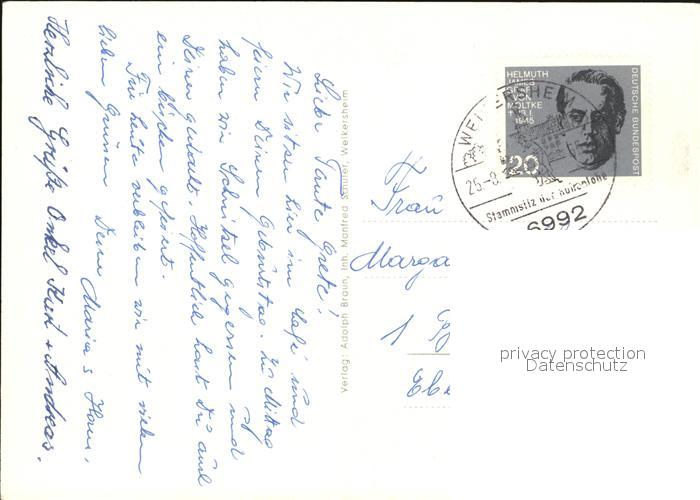 Liebe Tante Grete!
Wir sitzen hier im Café und
feiern Deinen Geburtstag. Zu Mittag
haben wir Schnitzel gegessen und
Deiner gedacht. Hoffentlich hast Du auch
ein bißchen gefeiert.
Für heute verbleiben wir mit vielen
lieben Grüssen Deine Maria + Hans.
Herzliche Grüße Onkel Kurt + Andreas.
Verlag: Adolph Braun, Inh. Manfred Schuler, Weikersheim
HELMUTH
JAMES
GRAF
VON
MOLTKE
1945
20
DEUTSCHE BUNDESPOST
WEIKERSHEI
Stammsitz der Hohenlohe
6992
Frau
Marga
1
privacy protection
Datenschutz